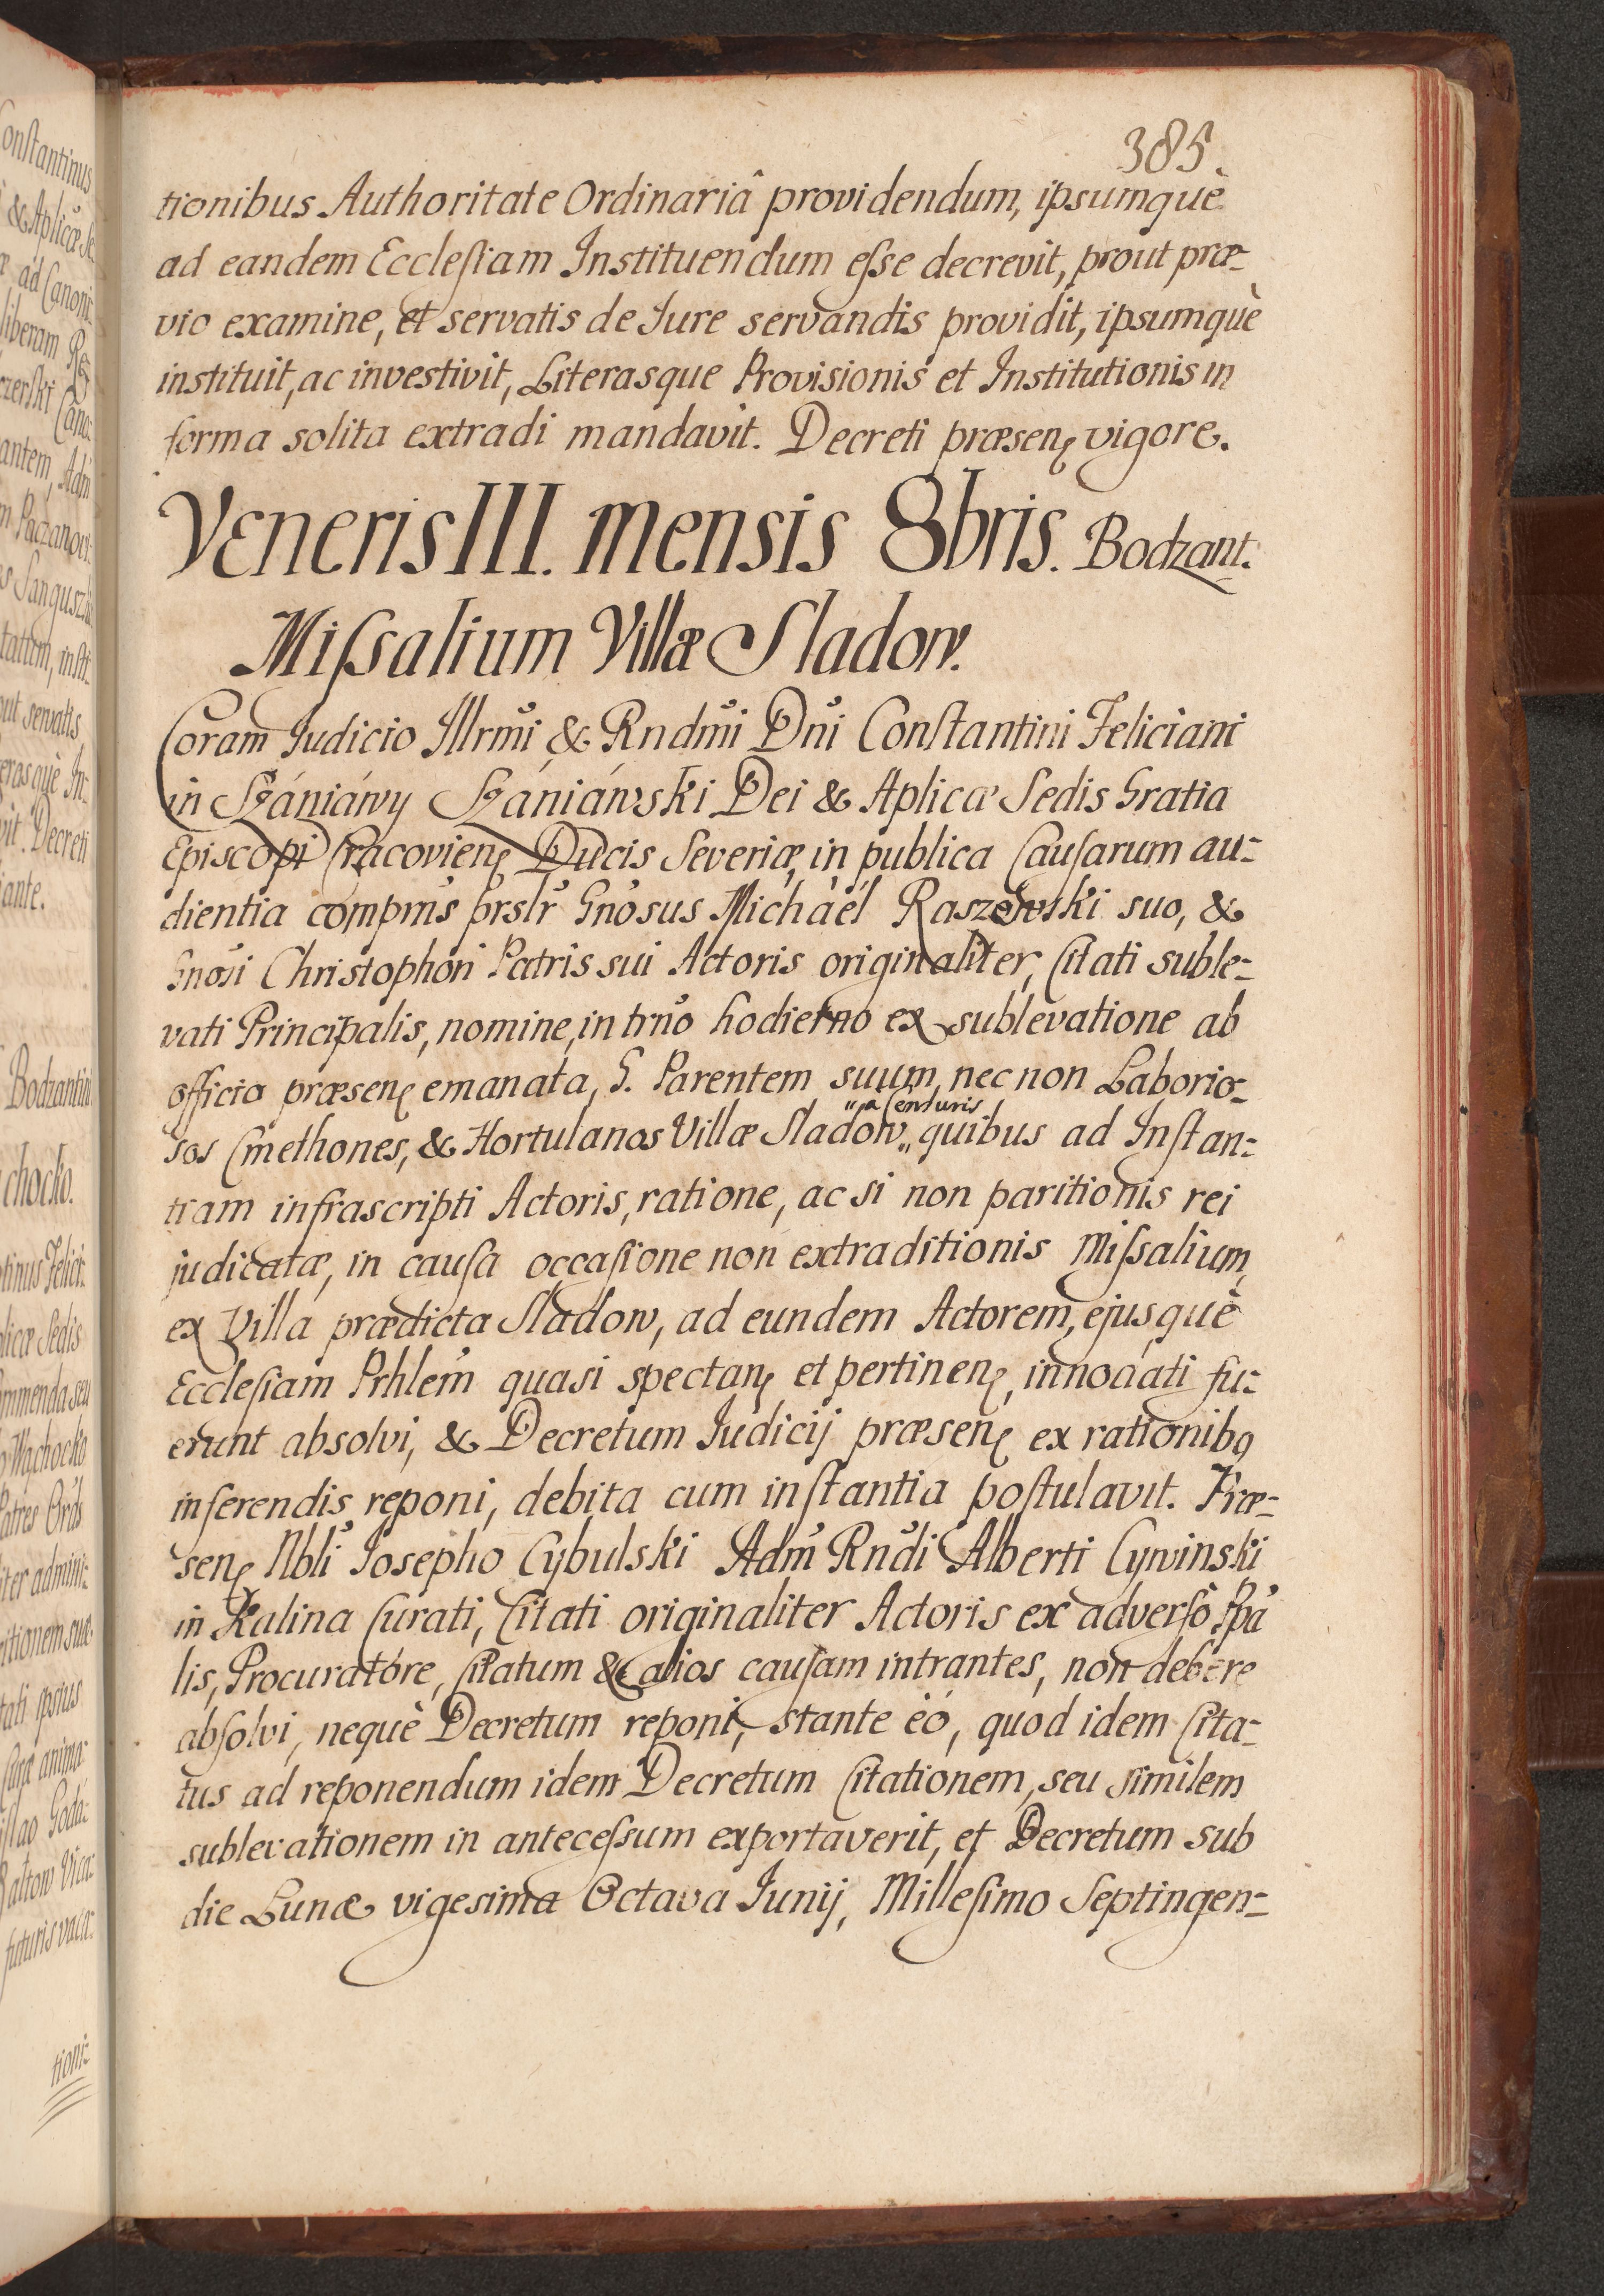 385.
tionibus Authoritate Ordinariâ providendum, ipsumquè
ad eandem Ecclesiam Instituendum esse decrevit, prout præ-
vio examine, et servatis de Jure servandis providit, ipsumquè
instituit, ac investivit, Literasque Provisionis et Institutionis in
forma solita extradi mandavit. Decreti præsenę vigore.
Veneris III. mensis 8bris. Bodzant.
Missalium Villæ Sladow.
Coram Judicio Illrmi & Rndmi Dni Constantini Feliciani
in Szániáwy Szániáwski Dei & Aplicæ Sedis Gratia
Episcopi Cracovienę Ducis Severiæ, in publica Causarum au-
dientia compms prslr Gnosus Michaël Raszewski suo, &
Gnosi Christophori Patris sui Actoris originaliter, Citati suble-
vati Principalis, nomine, in trno hodierno ex sublevatione ab
officio præsenę emanata, G. Parentem suum, nec non Laborio-
sos Cmethones, & Hortulanos Villæ Sladow „a Censuris„ quibus ad Instan-
tiam infrascripti Actoris, ratione, ac si non paritionis rei
judicatæ, in causa occasione non extraditionis Missalium,
ex Villa prædicta Sladow, ad eundem Actorem, ejusquè
Ecclesiam Prhlem quasi spectanę et pertinenę, innodati fu-
erunt absolvi, & Decretum Judicij præsenę ex rationibq
inserendis reponi, debita cum instantia postulavit. Præ-
senę Nbli Josepho Cybulski Adm Rndi Alberti Cywinski
in Kalina Curati, Citati originaliter Actoris ex adverso Ppa
lis, Procuratóre, Citatum & alios causam intrantes, non debere
absolvi, nequè Decretum reponi, stante eó, quod idem Cita-
tus ad reponendum idem Decretum Citationem, seu similem
sublevationem in antecessum exportaverit, et Decretum sub
die Lunæ vigesima Octava Junij, Millesimo Septingen-